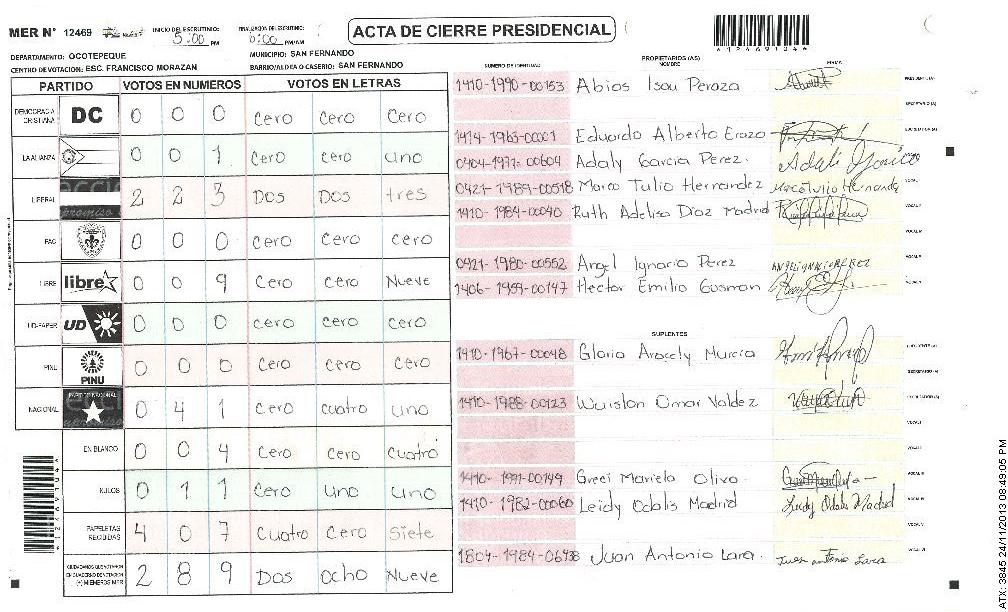 MER N° 12469
INICIO DEL ESCRUTINIO: 5:00 PM
FINALIZACION DEL ESCRUTINIO: 6:00 PM/AM
ACTA DE CIERRE PRESIDENCIAL
DEPARTAMENTO: OCOTEPEQUE
MUNICIPIO: SAN FERNANDO
CENTRO DE VOTACION: ESC. FRANCISCO MORAZAN
BARRIO/ALDEA O CASERIO: SAN FERNANDO
PARTIDO VOTOS EN NUMEROS VOTOS EN LETRAS
DEMOCRACIA CRISTIANA DC 0 0 0 Cero Cero Cero
LA ALIANZA 0 0 1 Cero cero uno
LIBERAL 2 2 3 Dos Dos tres
PAC 0 0 0 Cero Cero cero
LIBRE libre 0 0 9 Cero Cero Nueve
UD-FAPER UD 0 0 0 cero cero cero
PINU PINU 0 0 0 Cero cero Cero
NACIONAL PARTIDO NACIONAL 0 4 1 Cero cuatro uno
EN BLANCO 0 0 4 Cero cero Cuatro
NULOS 0 1 1 Cero uno uno
PAPELETAS RECIBIDAS 4 0 7 Cuatro Cero Siete
CIUDADANOS QUE VOTARON EN CUADERNO DE VOTACION (+) MIEMBROS MER 2 8 9 Dos ocho Nueve
NUMERO DE IDENTIDAD
PROPIETARIOS (AS)
NOMBRE
FIRMA
1410-1990-00153 Abios Isau Peraza PRESIDENTE (A)
SECRETARIO (A)
1414-1963-00001 Eduardo Alberto Erazo ESCRUTADOR (A)
0404-1977-00604 Adaly Garcia Perez. VOCAL I
0421-1989-00518 Marco Tulio Hernandez
1410-1984-00040 Ruth Adelisa Diaz Madrid
0421-1980-00552 Angel Ignacio Perez
1406-1959-00147 Hector Emilio Gusman
SUPLENTES
1410-1967-00048 Gloria Aracely Murcia
SECRETARIO (A)
1410-1988-00123 Wuiston Omar Valdez
1410-1991-00149 Greci Mariela Oliva.
1410-1982-00060 Leidy Odalis Madrid Leidy Odalis Madrid
1804-1984-06438 Juan Antonio Lara.
ATX: 3845 24/11/2013 08:49:05 PM